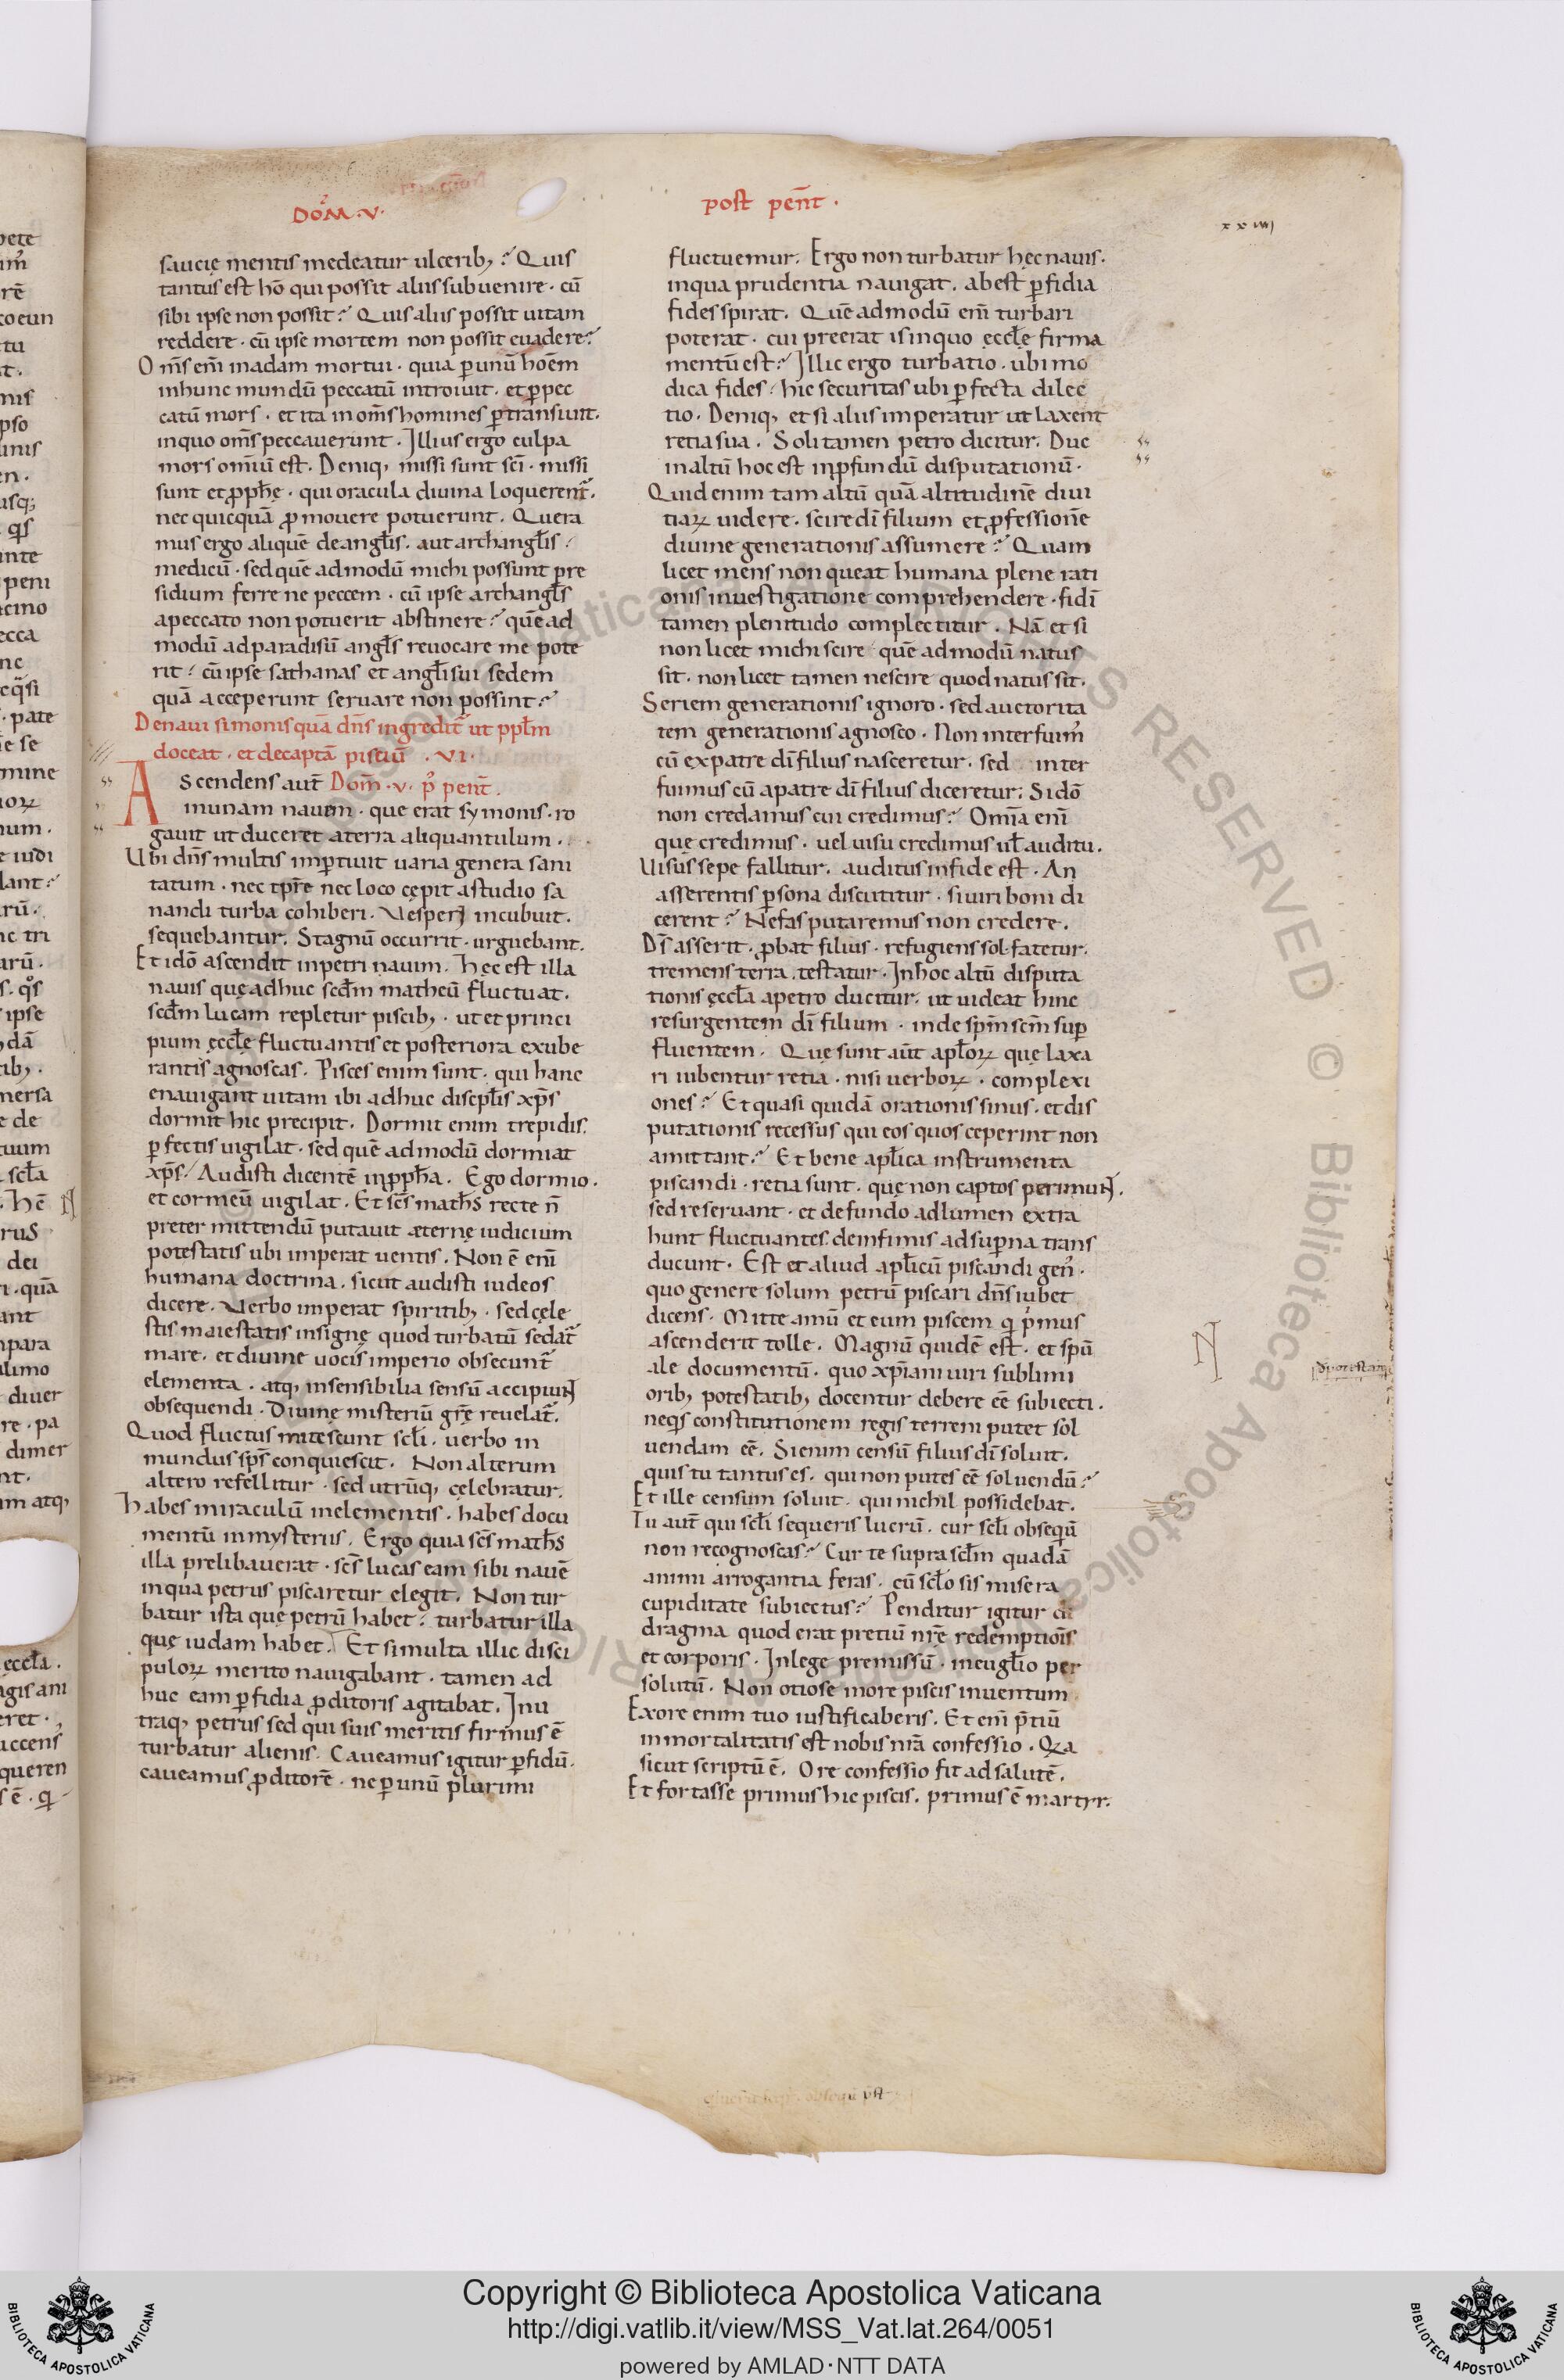 Dom̄.v.
saucię mentis medeatur ulcerib; ? Quis
tantus est hō qui possit aliis subuenire . cū
sibi ipse non possit? Quis aliis possit uitam
reddere . cū ipse mortem non possit euadere?
Om̄s eni̅ inadam mortui . quia ꝑ unū hoēm
inhunc mundū peccatū introiuit . et ꝑ pec
catū mors . et ita in om̄s homines ꝑtransiuit.
inquo om̄s peccauerunt . Illius ergo culpa
mors omiū est . Deniq, missi sunt sc̄i . missi
sunt et ꝓph̄ę . qui oracula diuina loquerent̄.
nec quicquā ꝓmouere potuerunt . Quera
mus ergo aliquē deangl̄is . aut archangl̄is .
medicū . sed quē admodū michi possunt p̄re
sidium ferre ne peccem . cū ipse archangl̄s
apeccato non potuerit abstinere? quē ad
modū adparadisū angl̄s reuocare me pote
rit? cū ipse sathanas et angl̄i sui sedem
quā acceperunt seruare non possint?
Denaui simonis quā dn̄s ingredit̄ ut ppl̄m
doceat . et decaptā pisciū . VI.
Ascendens aut̄ Dom̄.v. p̾ pent̄.
inunam nauem . que erat symonis . ro
gauit ut duceret aterra aliquantulum .
Ubi dn̄s multis imꝑtiuit uaria genera sani
tatum . nec tp̄re nec loco cępit astudio sa
nandi turba cohiberi . Vesper incubuit .
sequebantur . Stagnū occurrit . urguebant .
Et idō ascendit inpetri nauim . Hęc est illa
nauis quę adhuc scdm̄ matheū fluctuat .
scdm̄ lucam repletur piscib; . ut et princi
pium ęccl̄ę fluctuantis et posteriora exube
rantis agnoscas . Pisces enim sunt . qui hanc
enauigant uitam ibi adhuc discipl̄is xp̄s
dormit hic precipit . Dormit enim trepidis .
ꝑfectis uigilat . sed quē admodū dormiat
xp̄s? Audisti dicentē inꝓph̄a . Ego dormio .
et cor meū uigilat . Et sc̄s math̄s recte n̄
preter mittendū putauit æternę iudicium
potestatis ubi imperat uentis . Non ē eni̅
humana doctrina . sicut audisti iudeos
dicere . Verbo imperat spiritib; . sed cęle
stis maiestatis insigne quod turbatū sedat̄
mare . et diuinę uocis imperio obsecunt̄
elementa . atq, insensibilia sensū accipiunt
obsequendi . Diuinę misteriū gr̄ę reuelat̄.
Quod fluctus mitescunt scl̄i . uerbo in
mundus sp̄s conquiescit . Non alterum
altero refellitur . sed utrūq, celebratur .
Habes miraculū inelementis . habes docu
mentū inmysteriis . Ergo quia sc̄s math̄s
illa prelibauerat . sc̄s lucas eam sibi nauē
inqua petrus piscaretur elegit . Non tur
batur ista quę petrū habet . turbatur illa
quę iudam habet . Et simulta illic disci
puloꝝ merito nauigabant . tamen ad
huc eam ꝑfidia ꝓditoris agitabat . Inu
traq, petrus sed qui suis meritis firmus ē
turbatur alienis . Caueamus igitur ꝑfidū .
caueamus ꝓditorē . ne ꝑ unū plurimi
post pent̄ .
xxiiii
fluctuemur . Ergo non turbatur hęc nauis .
inqua prudentia nauigat . abest ꝑfidia
fides spirat . Quē admodū eni̅ turbari
poterat . cui preerat is inquo ęccl̄ę firma
mentū est? Illic ergo turbatio . ubi mo
dica fides . hic securitas ubi ꝑfecta dilec
tio . Deniq, et si aliis imperatur ut laxent
retia sua . Soli tamen petro dicitur . Duc
inaltū hoc est inꝓfundū disputationū .
Quid enim tam altū quā altitudinē diui
tiaꝝ uidere . scire dī filium et ꝓfessionē
diuinę generationis assumere? Quam
licet mens non queat humana plene rati
onis inuestigatione comprehendere . fidī
tamen plenitudo complectitur . Nā et si
non licet michi scire quē admodū natus
sit . non licet tamen nescire quod natus sit .
Seriem generationis ignoro . sed auctorita
tem generationis agnosco . Non interfuim̾
cū expatre dī filius nasceretur . sed inter
fuimus cū apatre dī filius diceretur . Si dō
non credamus cui credimus? Omīa eni̅
quę credimus . uel uisu credimus ul̄ auditu .
Uisus sepe fallitur . auditus infide est . An
asserentis ꝑsona discutitur . si uiri boni di
cerent? Nefas putaremus non credere .
Ds̄ asserit . ꝓbat filius . refugiens sol fatetur .
tremens terra testatur . Inhoc altū disputa
tionis ęccl̄a apetro ducitur . ut uideat hinc
resurgentem dī filium . inde sp̄m sc̄m suꝑ
fluentem . Quę sunt aūt apl̄oꝝ quę laxa
ri iubentur retia . nisi uerboꝝ . complexi
ones? Et quasi quidā orationis sinus . et dis
putationis recessus qui eos quos ceperint non
amittant? Et bene apl̄ica instrumenta
piscandi . retia sunt . quę non captos perimunt .
sed reseruant . et defundo adlumen extra
hunt fluctuantes . deinfimis adsuꝑna trans
ducunt . Est et aliud apl̄icū piscandi gen̾ .
quo genere solum petrū piscari dn̄s iubet
dicens . Mitte amū et eum piscem q̇ p̾mus
ascenderit tolle . Magnū quidē est . et spū
ale documentū . quo xp̄iani uiri sublimi
orib; potestatib; docentur debere eē subiecti .
neq̇s constitutionem regis terreni putet sol
uendam eē . Si enim censū filius dī soluit .
quis tu tantus es . qui non putes eē soluendū?
Et ille censum soluit . qui nichil possidebat .
Tu aut̄ qui scl̄i sequeris lucrū . cur scl̄i obseqiū
non recognoscas? Cur te supra scl̄m quadā
animi arrogantia feras . cū scl̄o sis misera
cupiditate subiectus? Penditur igitur di
dragma quod erat pretiū nr̄ę redemptiōis
et corporis . Inlege premissū . ineugl̄io per
solutū . Non otiose inore piscis inuentum
Exore enim tuo iustificaberis . Et eni̅ p̄tiū
inmortalitatis est nobis nr̄a confessio . Q̅a
sicut scriptū ē . Ore confessio fit adsalutē .
Et fortasse primus hic piscis . primus ē martyr.
Copyright © Biblioteca Apostolica Vaticana
http://digi.vatlib.it/view/MSS_Vat.lat.264/0051
powered by AMLAD·NTT DATA